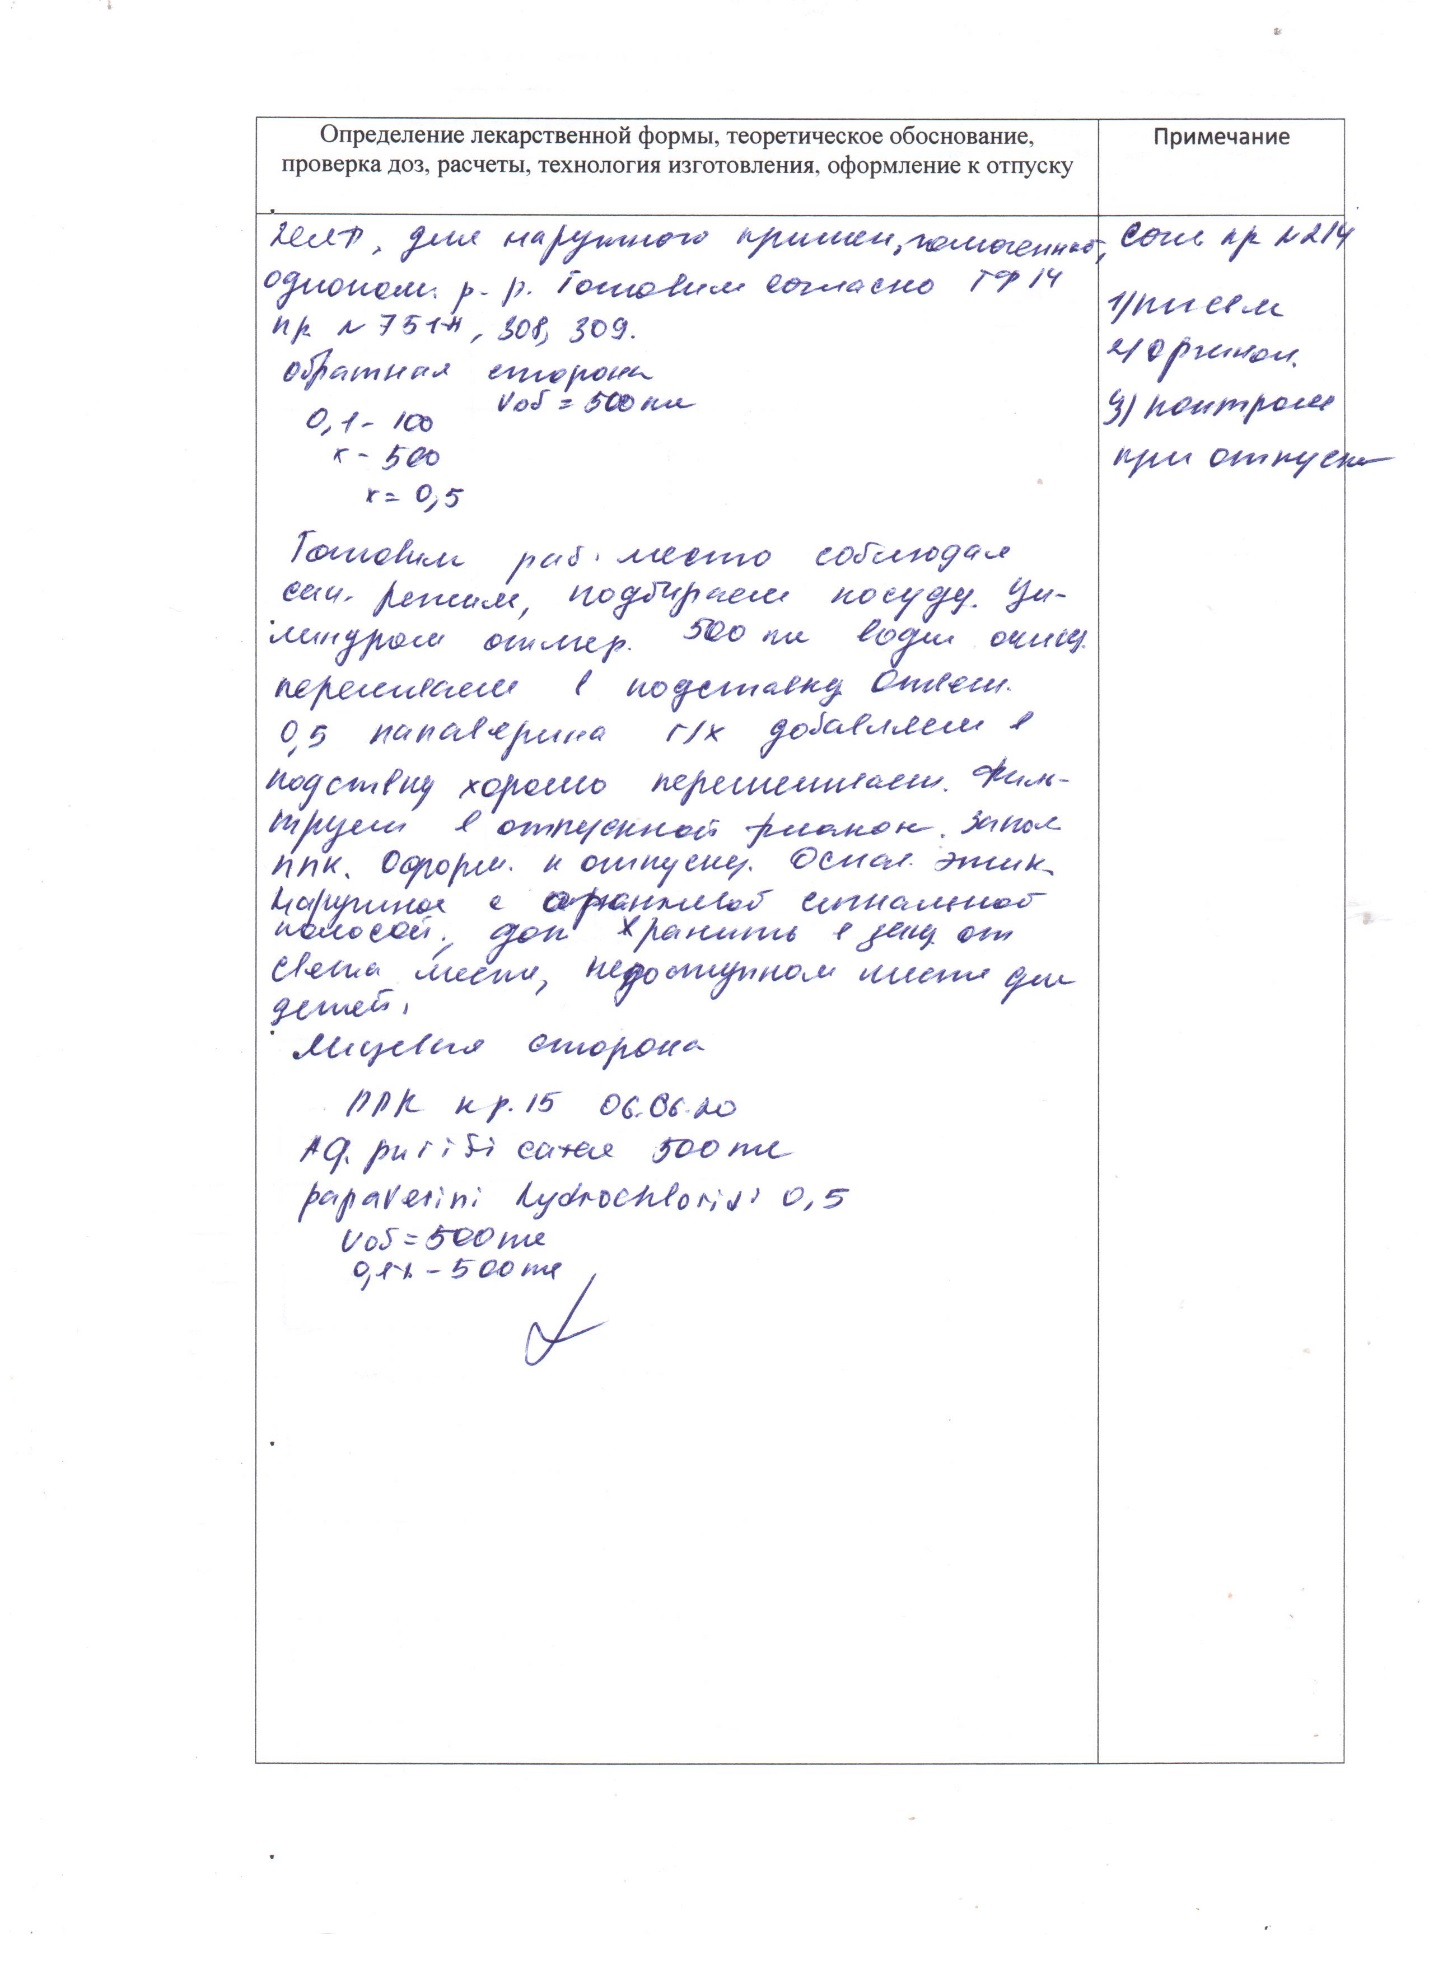 Определение лекарственной формы, теоретическое обоснование,
проверка доз, расчеты, технология изготовления, оформление к отпуску
Примечание
ЖЛФ, для наружного примен, гомогенный,
одноком. р-р. Готовим согласно ГФ 14
пр № 751н, 308, 309.
обратная сторона
Vоб = 500 мл
0,1 - 100
х - 500
х = 0,5
Готовим раб. место соблюдая
сан. режим, подбираем посуду. Ци-
линдром отмер. 500 мл воды очищ.
переливаем в подставку Отвеш.
0,5 папаверина г/х добавляем в
подствку хорошо перешиваем. Филь-
труем в отпускной флакон. Запол
ППК. Оформ. к отпуску. Основ. этик.
Наружное с оранжевой сигнальной
полосой., доп Хранить в защ от
света месте, недоступном месте для
детей.
Лицевая сторона
ППК к р. 15 06.06.20
Aq. purifi 500 мл
papaverini hydrochloridi 0,5
Vоб = 500 мл
0,1% - 500 мл
Согл пр № 214
1) письм
2) Органол.
3) контроль
при отпуске